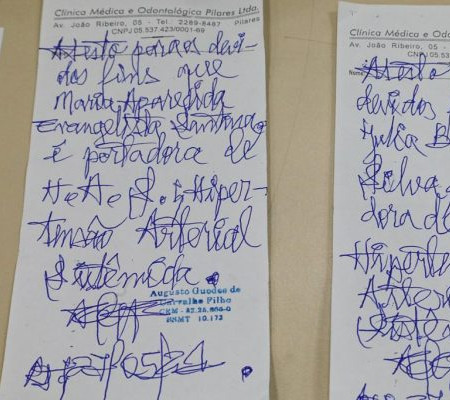 Clínica Médica e Odontológica Pilares Ltda.
Av. João Ribeiro, 05 - Tel. 2289-8487 Pilares
CNPJ 05.537.423/0001-69
Atesto para os devi-
dos fins que
Maria Aparecida
Evangelista Santana
é portadora de
H.A.S.; Hiper-
tensão Arterial
Sistêmica.
Augusto Guedes de
Carvalho Filho
CRM -
SSMT 10.173
Clínica Médica e Odontológica
Av. João Ribeiro, 05 -
CNPJ 05.53
Nome
Atesto
devidos
Julia B
Silva
dora de
Hiperte
Arter
Sistê